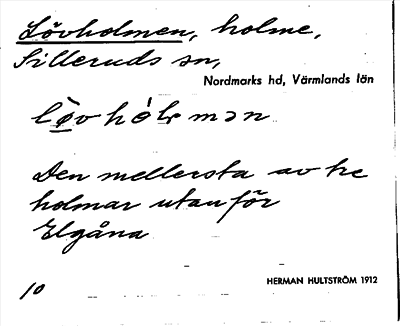 Lövholmen, holme,
Silleruds sn,
Nordmarks hd, Värmlands län
Den mellersta av tre
holmar utanför
Elgåna
10
HERMAN HULTSTRÖM 1912